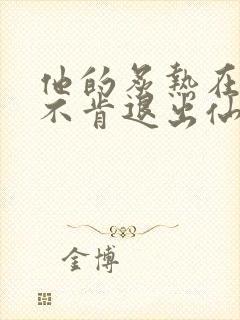 他的炙热在
不肯退出仙
金博